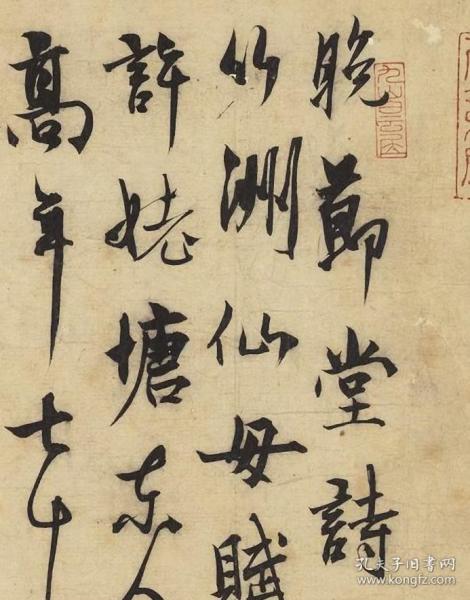 晚節堂詩
竹洲仙母賦
許姥塘東
高年七十
孔夫子旧书网
www.kongfz.com